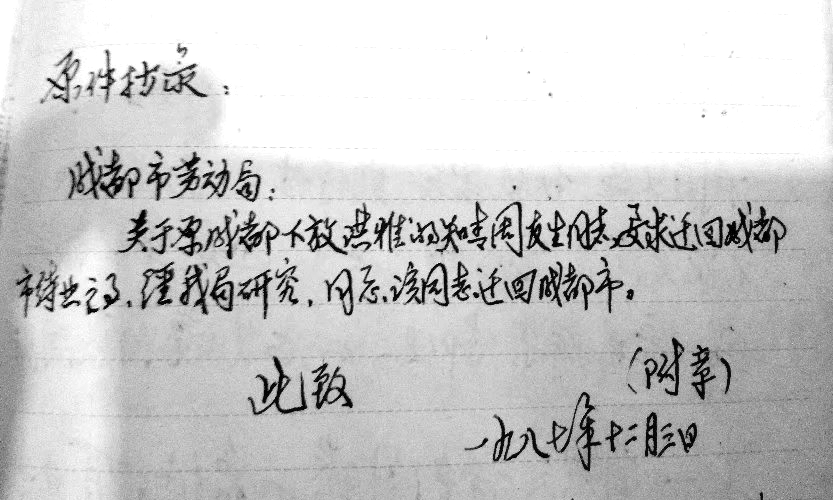 原件抄录：
成都市劳动局：
关于原成都下放洪雅的知青周友生同志要求迁回成都
市待业之事，经我局研究，同意该同志迁回成都市。
此致
（附章）
一九八七年十二月三日